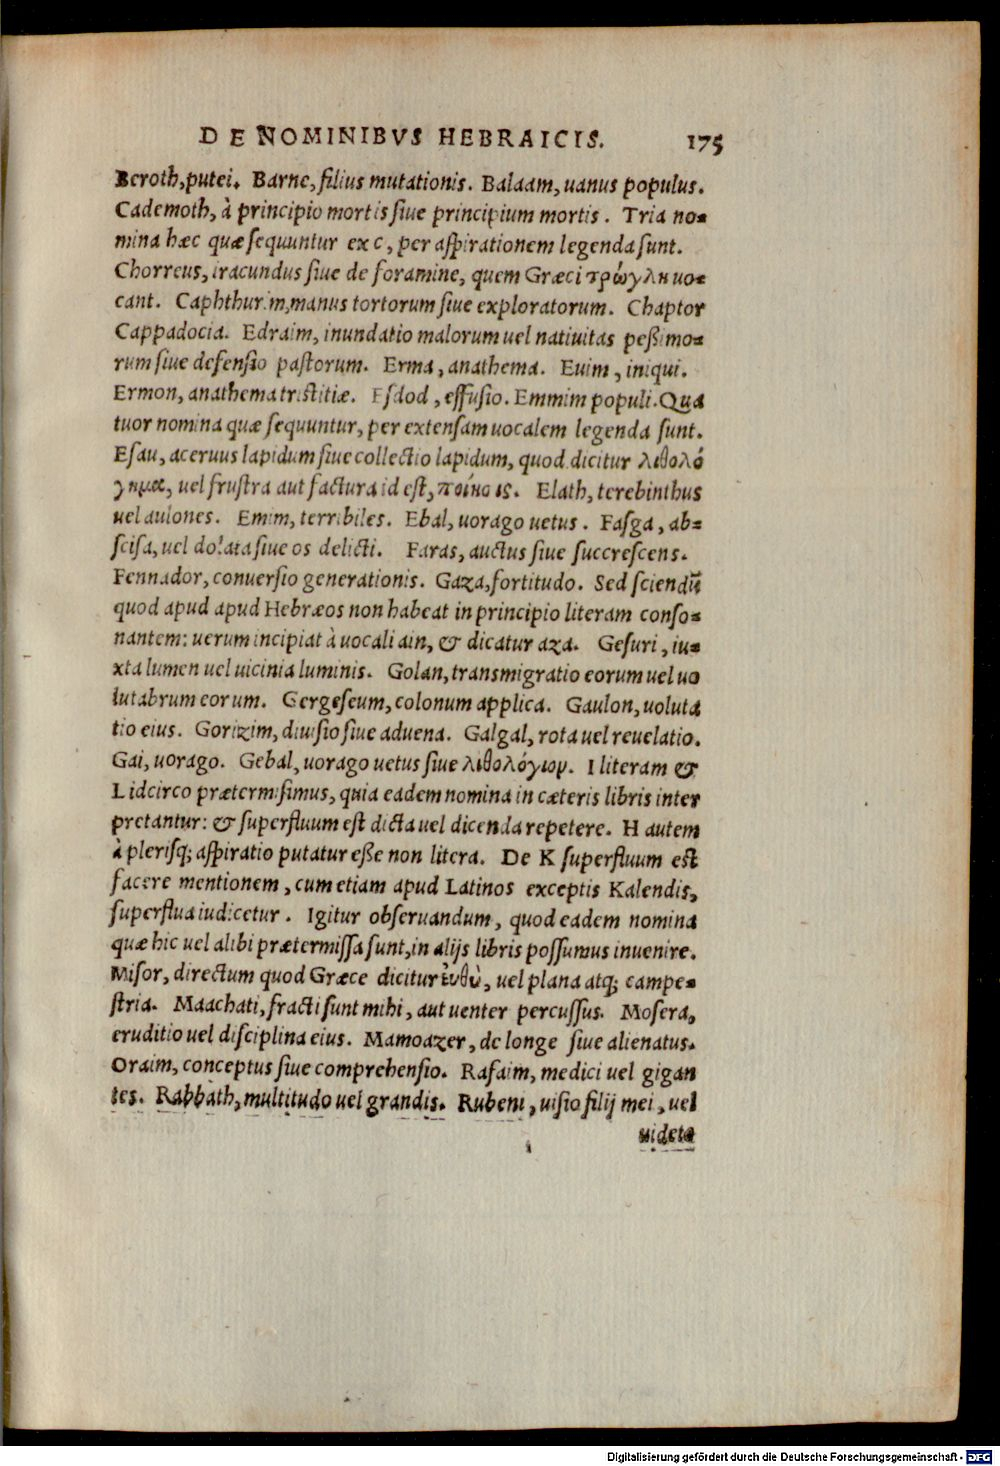 DE NOMINIBVS HEBRAICIS. 175
Beroth, putei. Barne, filius mutationis. Balaam, uanus populus.
Cademoth, à principio mortis siue principium mortis. Tria no-
mina hæc quæ sequuntur ex c, per aspirationem legenda sunt.
Chorreus, iracundus siue de foramine, quem Græci τρώγλη uo-
cant. Caphthurim, manus tortorum siue exploratorum. Chaptor
Cappadocia. Edraim, inundatio malorum uel natiuitas peßimo-
rum siue defensio pastorum. Erma, anathema. Euim, iniqui.
Ermon, anathema tristitiæ. Esdod, effusio. Emmim populi. Qua
tuor nomina quæ sequuntur, per extensam uocalem legenda sunt.
Esau, aceruus lapidum siue collectio lapidum, quod dicitur λιθολό
γημα, uel frustra aut factura id est, ποίησις. Elath, terebinthus
uel aulones. Emim, terribiles. Ebal, uorago uetus. Fasga, ab-
scisa, uel dolata siue os delicti. Faras, auctus siue succrescens.
Fennador, conuersio generationis. Gaza, fortitudo. Sed sciendū
quod apud apud Hebræos non habeat in principio literam conso-
nantem: uerum incipiat à uocali ain, & dicatur aza. Gesuri, iu-
xta lumen uel uicinia luminis. Golan, transmigratio eorum uel uo
lutabrum eorum. Gergeseum, colonum applica. Gaulon, uoluta
tio eius. Gorizim, diuisio siue aduena. Galgal, rota uel reuelatio.
Gai, uorago. Gebal, uorago uetus siue λιθολόγιον. I literam &
L idcirco prætermisimus, quia eadem nomina in cæteris libris inter
pretantur: & superfluum est dicta uel dicenda repetere. H autem
à plerisq; aspiratio putatur eße non litera. De K superfluum est
facere mentionem, cum etiam apud Latinos exceptis Kalendis,
superflua iudicetur. Igitur obseruandum, quod eadem nomina
quæ hic uel alibi prætermissa sunt, in alijs libris possumus inuenire.
Misor, directum quod Græce dicitur ἐυθὺ, uel plana atq; campe-
stria. Maachati, fracti sunt mihi, aut uenter percussus. Mosera,
eruditio uel disciplina eius. Mamoazer, de longe siue alienatus.
Oraim, conceptus siue comprehensio. Rafaim, medici uel gigan
tes. Rabbath, multitudo uel grandis. Rubeni, uisio filij mei, uel
uidete
Digitalisierung gefördert durch die Deutsche Forschungsgemeinschaft - DFG